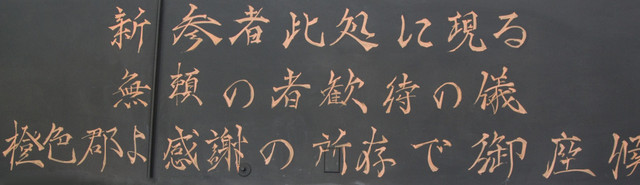 新参者此処に現る
無頼の者歓待の儀
橙色郡よ感謝の所存で御座候